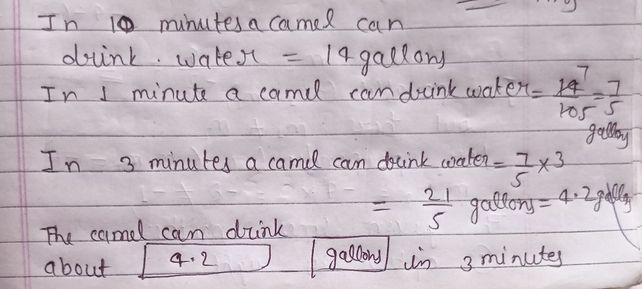 In 10 minutes a camel can
drink . water = 14 gallons
In 1 minute a camel can drink water = 14 7 / 10 5 = 7/5 gallon
In 3 minutes a camel can drink water = 7/5 × 3
= 21/5 gallons = 4.2 gallons
The camel can drink
about 4.2 gallons in 3 minutes